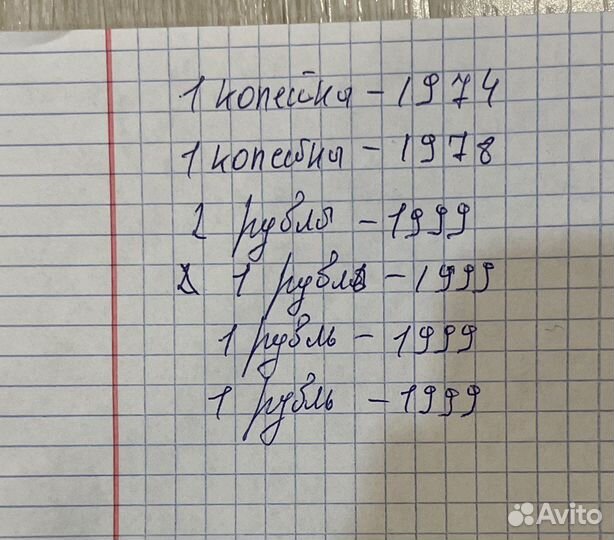 1 копейка - 1974
1 копейка - 1978
1 рубль - 1999
1 рубль - 1999
1 рубль - 1999
1 рубль - 1999
Avito